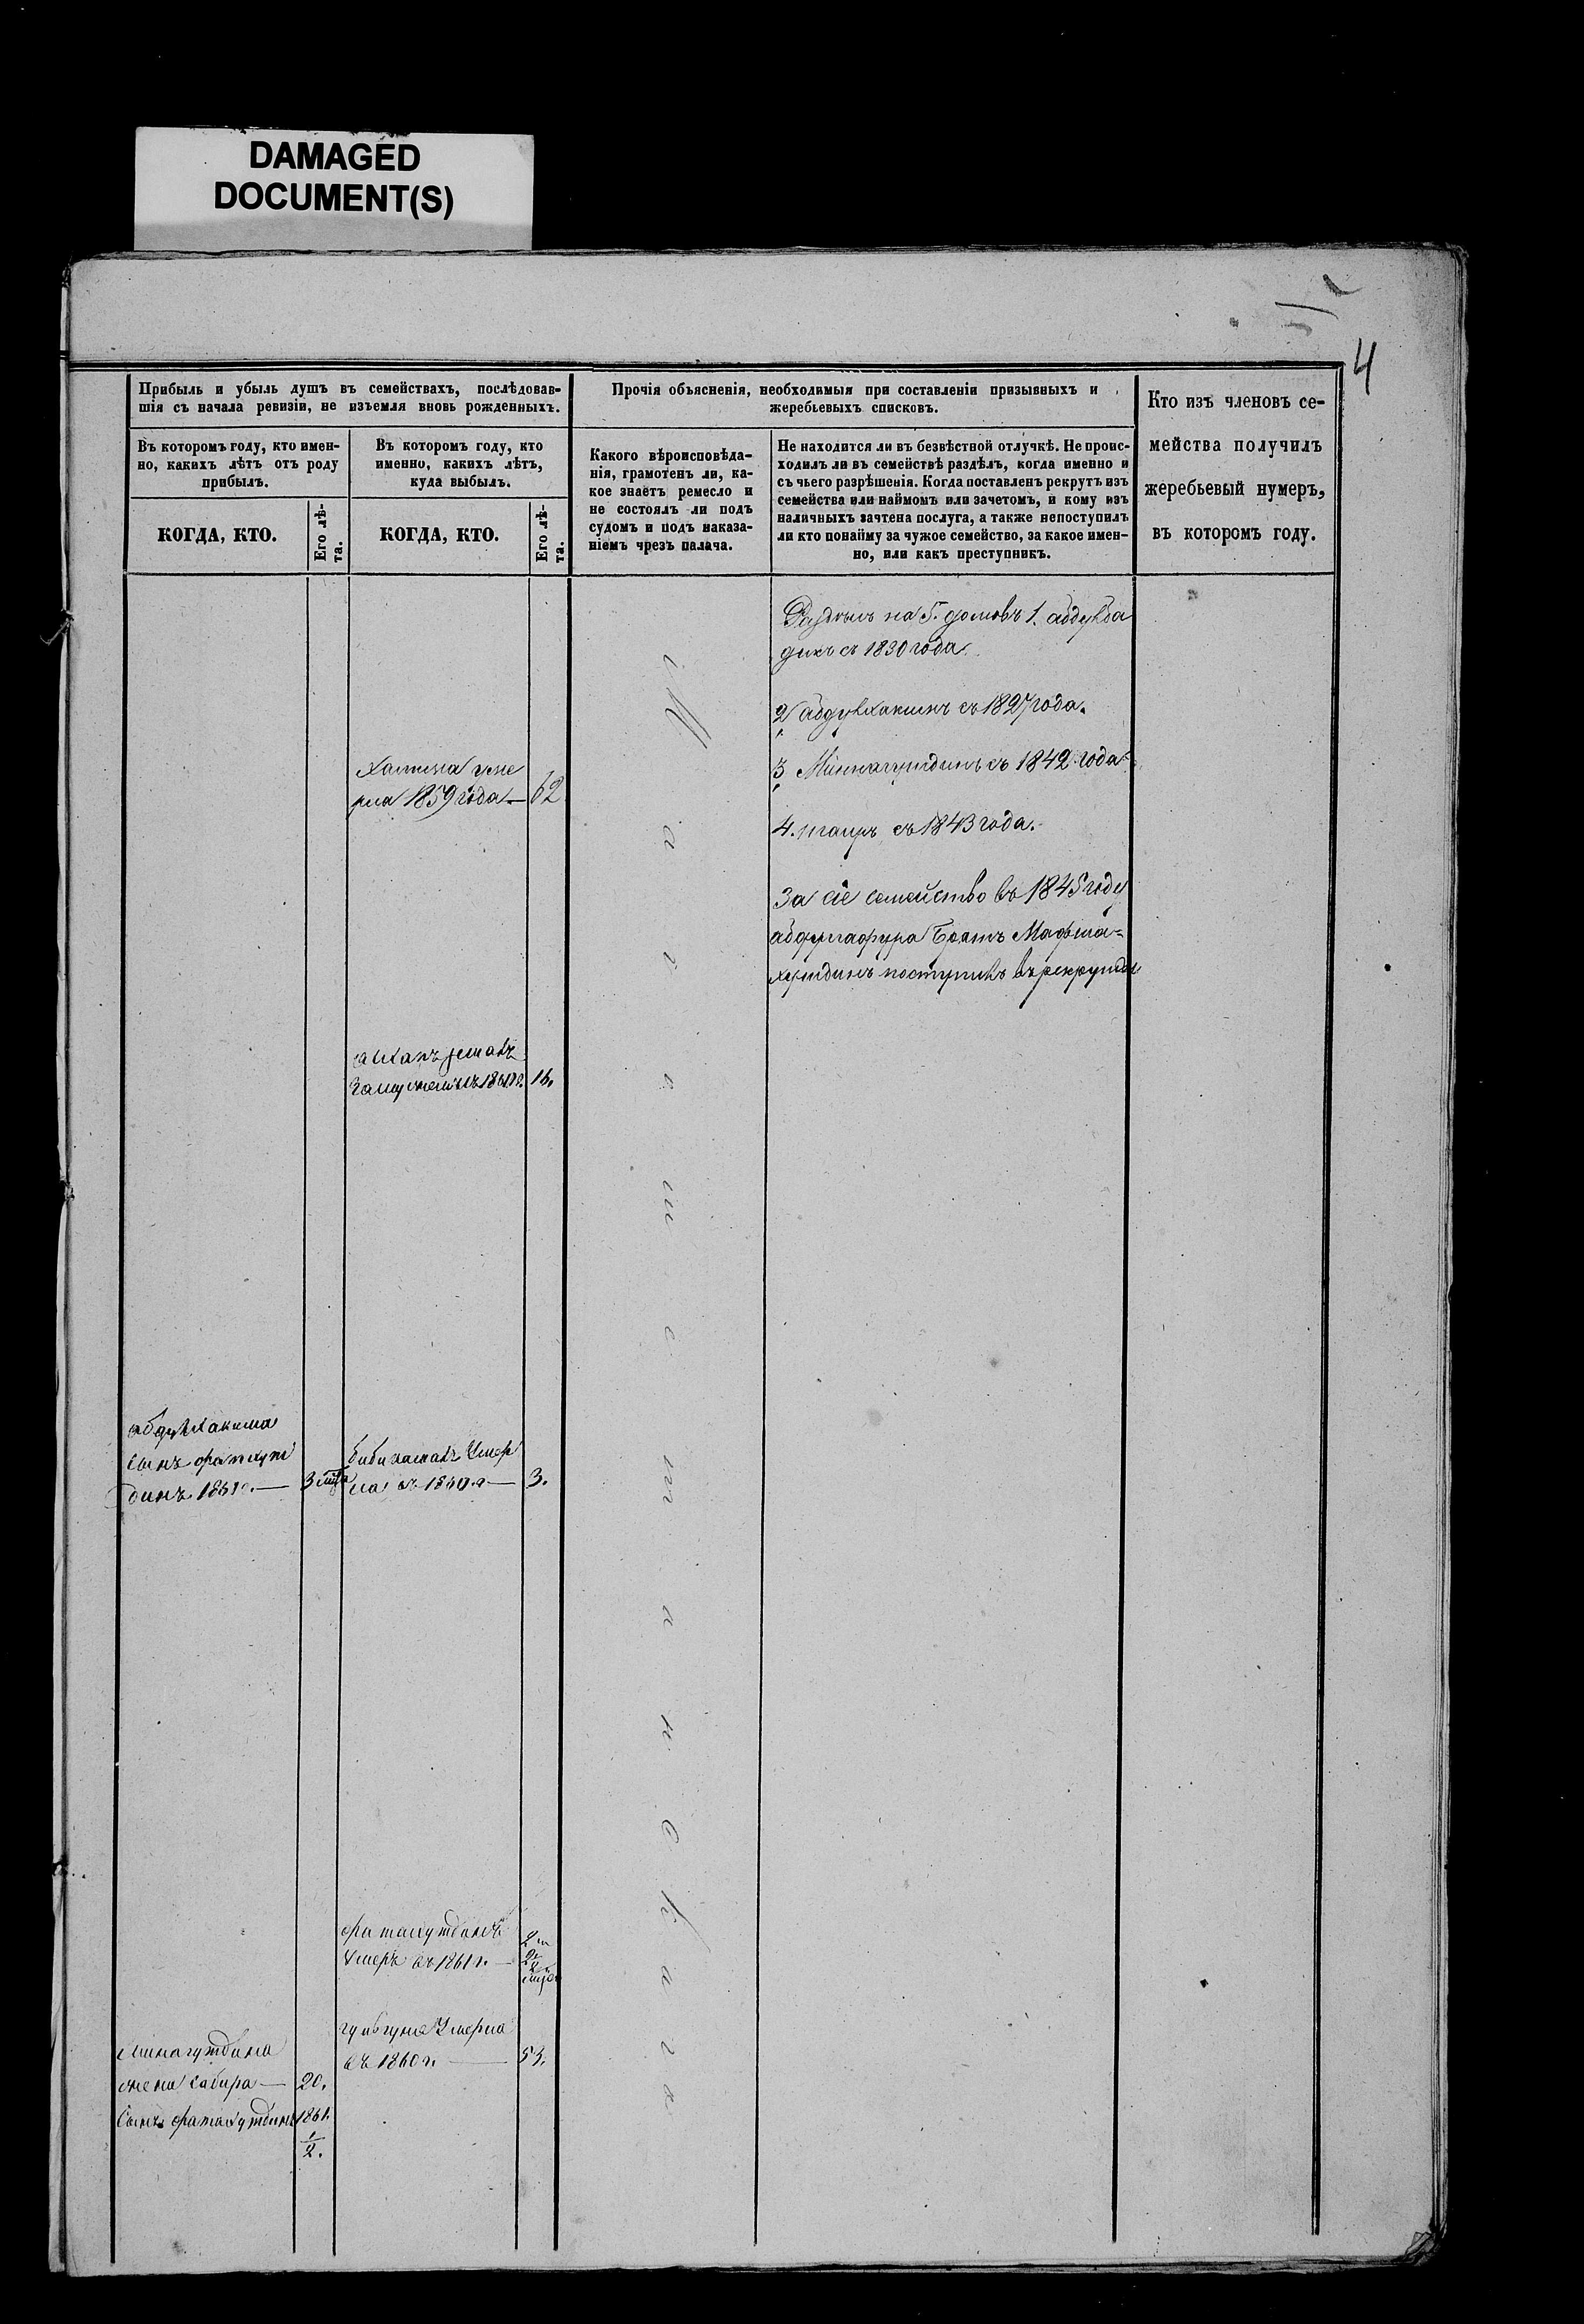 DAMAGED
DOCUMENT(S)
4
Прибыль и убыль душъ въ семействахъ, послѣдовав-
шія съ начала ревизіи, не изъемля вновь рожденныхъ.
Въ которомъ году, кто имен-
но, какихъ лѣтъ отъ роду
прибылъ.
КОГДА, КТО.
Его лѣ-
та.
Въ которомъ году, кто
именно, какихъ лѣтъ,
куда выбылъ.
КОГДА, КТО.
Его лѣ-
та.
Прочія объясненія, необходимыя при составленіи призывныхъ и
жеребьевыхъ списковъ.
Какого вѣроисповѣда-
нія, грамотенъ ли, ка-
кое знаетъ ремесло и
не состоялъ ли подъ
судомъ и подъ наказа-
ніемъ чрезъ палача.
Не находится ли въ безвѣстной отлучкѣ. Не проис-
ходилъ ли въ семействѣ раздѣлъ, когда именно и
съ чьего разрѣшенія. Когда поставленъ рекрутъ изъ
семейства или наймомъ или зачетомъ, и кому изъ
наличныхъ зачтена послуга, а также непоступилъ
ли кто понайму за чужое семейство, за какое имен-
но, или какъ преступникъ.
Кто изъ членовъ се-
мейства получилъ
жеребьевый нумеръ,
въ которомъ году.
на 5. домовъ 1.
съ 1830 года.
2 абдулхакимъ съ 1827 года.
3 Миннагутдинъ съ 1842 года
4. съ 1843 года.
За сіе семейство въ 1845 году
абдулгафура Братъ
поступилъ въ рекруты
Халима уме
рла 1859 года — 62
замужемъ въ 1861 г. 16.
Магометанскаго
абдулхакима
сынъ фатхут
динъ 1861 г. — 3
Умер
ла въ 1860 г — 3.
Умеръ въ 1861 г. —
Умерла
въ 1860 г. — 53.
Минагутдина
жена Сабира — 20.
Сынъ фатахутдинъ 1861.
1/2.